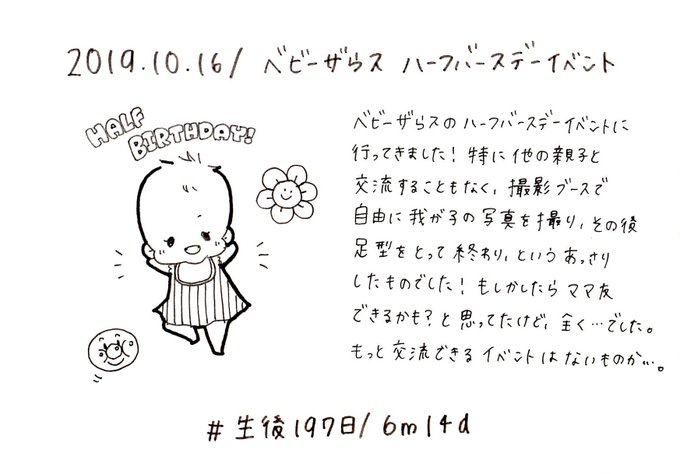 2019.10.16/ ベビーザらス ハーフバースデーイベント
HALF
BIRTHDAY!
ベビーザらスのハーフバースデーイベントに
行ってきました!特に他の親子と
交流することもなく、撮影ブースで
自由に我が子の写真を撮り、その後
足型をとって終わり、というあっさり
したものでした!もしかしたらママ友
できるかも?と思ってたけど、全く…でした。
もっと交流できるイベントはないものか…。
#生後197日/6m14d